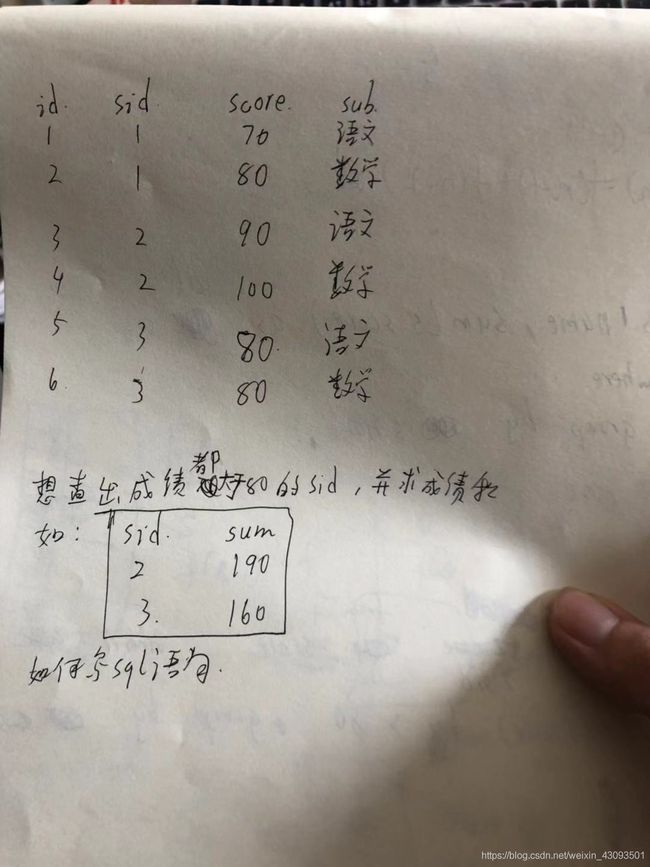 id. sid. score. sub.
1 1 70 语文
2 1 80 数学
3 2 90 语文
4 2 100 数学
5 3 80. 语文
6. 3 80 数学
想查出成绩都大于80的sid，并求成绩和
如：
sid. sum
2 190
3. 160
如何写sql语句.
https://blog.csdn.net/weixin_43093501